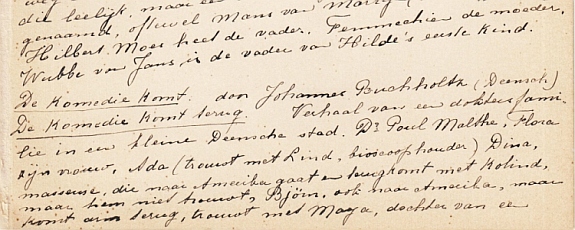 die leelijk, maar een
genaamd, oftewel Mans van
Hilbert. Moes heet de vader. Femmechien de moeder.
Wubbe von Jans, is de vader van Hilde's eerste kind.
De Komedie komt. don Johannes Buchholtz (Deensch)
De Komedie komt terug. Verhaal van een doktersfami-
lie in een kleine Deensche stad. Dr Poul Malthe, Flora
zijn vrouw, Ada (trouwt met Lind, bioscoophouder) Dina,
masseuse, die naar Amerika gaat en terugkomt met Kolind,
maar hem niet trouwt, Björn, ook naar Amerika, maar
komt arm terug, trouwt met Maya, dochter van een